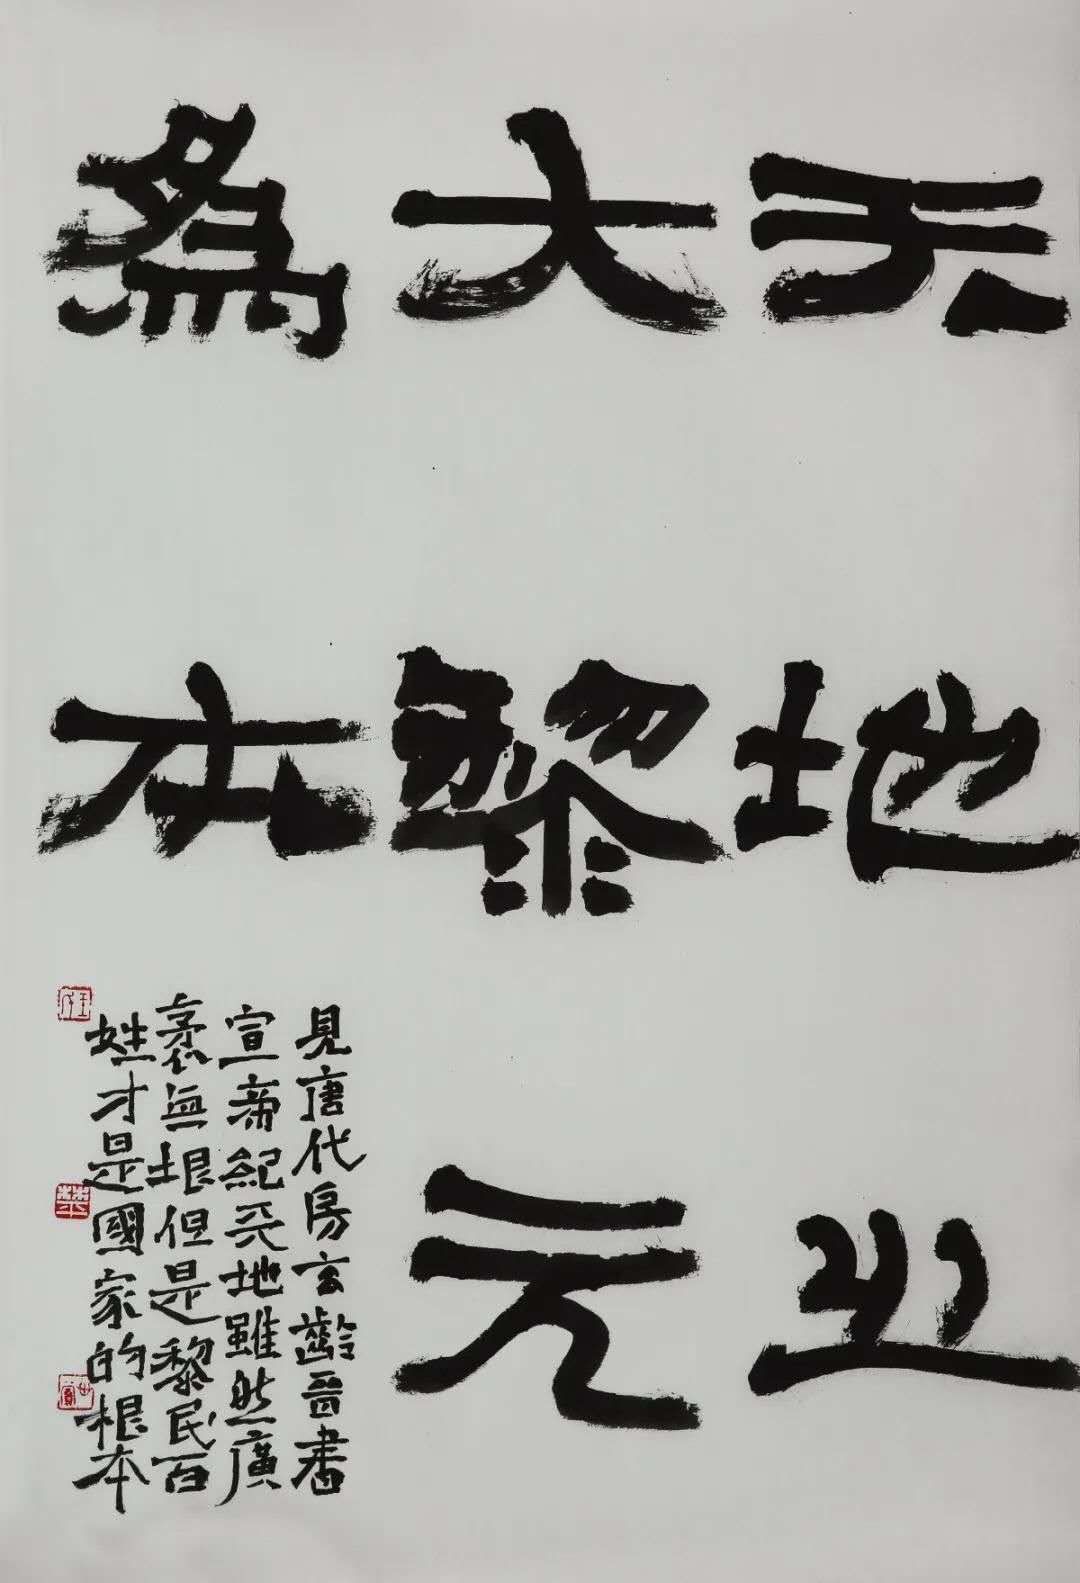 天地之
大黎元
為本
見唐代房玄齡晉書
宣帝紀天地雖然廣
袤無垠但是黎民百
姓才是國家的根本